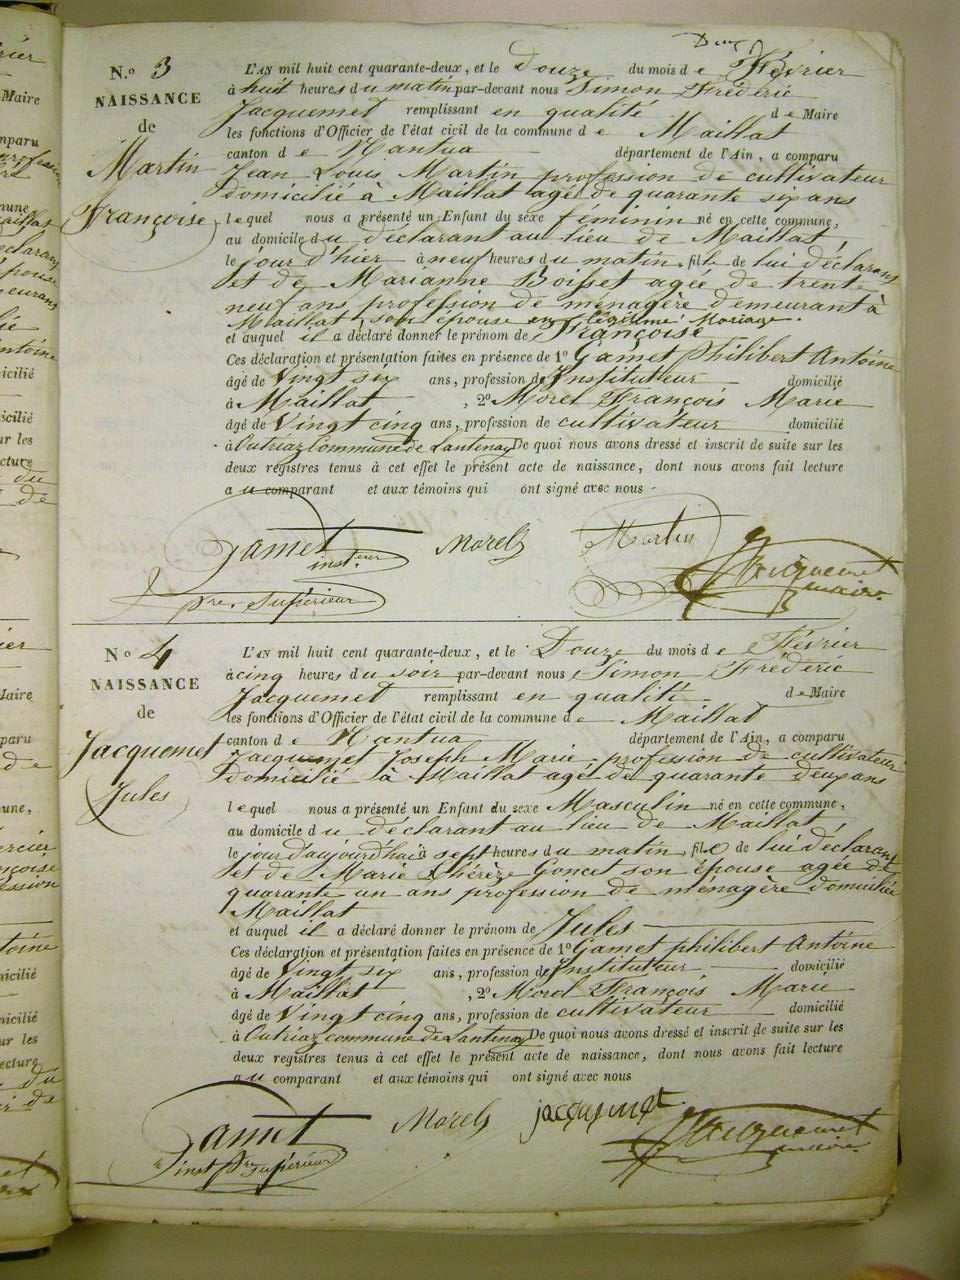 Deux
N.o 3
NAISSANCE
de
Martin
Françoise
L'AN mil huit cent quarante-deux, et le Douze du mois de Février
à huit heures du matin par-devant nous Simon Fréderic
Jacquemet remplissant en qualité de Maire
les fonctions d'Officier de l'état civil de la commune de Maillat
canton de Nantua département de l'Ain, a comparu
Jean Louis Martin profession de cultivateur
domicilié à Maillat agé de quarante six ans
lequel nous a présenté un Enfant du sexe féminin né en cette commune,
au domicile du déclarant au lieu de Maillat,
le jour d'hier à neuf heures du matin, fille de lui déclarant
et de Marianne Boisset agée de trente
neuf ans profession de ménagère demeurant à
Maillat, son épouse en légitime Mariage.
et auquel il a déclaré donner le prénom de Françoise
Ces déclaration et présentation faites en présence de 1o Gamet Philibert Antoine
âgé de Vingt six ans, profession d'Instituteur domicilié
à Maillat, 2o Morel François Marie
âgé de Vingt cinq ans, profession de cultivateur domicilié
à Outriaz Commune de Lantenay De quoi nous avons dressé et inscrit de suite sur les
deux registres tenus à cet effet le présent acte de naissance, dont nous avons fait lecture
au comparant et aux témoins qui ont signé avec nous
Gamet Morel Martin Jacquemet
inst.eur maire
pre. Supérieur
No 4
NAISSANCE
de
Jacquemet
Jules
L'AN mil huit cent quarante-deux, et le Douze du mois de Février
à cinq heures du soir par-devant nous Simon Fréderic
Jacquemet remplissant en qualité de Maire
les fonctions d'Officier de l'état civil de la commune de Maillat
canton de Nantua département de l'Ain, a comparu
Jacquemet Joseph Marie, profession de cultivateur
domicilié à Maillat agé de quarante deux ans
lequel nous a présenté un Enfant du sexe Masculin né en cette commune,
au domicile du déclarant au lieu de Maillat,
le jour d'aujourd'hui à sept heures du matin, fils de lui déclarant
et de Marie Thérèze Goncet son épouse agée de
quarante un ans profession de ménagère domiciliée
Maillat
et auquel il a déclaré donner le prénom de Jules
Ces déclaration et présentation faites en présence de 1o Gamet philibert Antoine
âgé de Vingt six ans, profession d'Instituteur domicilié
à Maillat, 2o Morel François Marie
âgé de Vingt cinq ans, profession de cultivateur domicilié
à Outriaz commune de Lantenay De quoi nous avons dressé et inscrit de suite sur les
deux registres tenus à cet effet le présent acte de naissance, dont nous avons fait lecture
au comparant et aux témoins qui ont signé avec nous
Gamet Morel jacquemet Jacquemet
inst pre supérieur maire